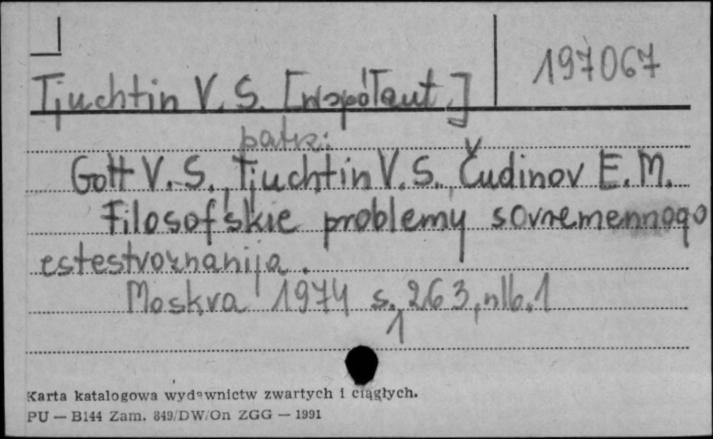 197067
Tjuchtin V. S. [współaut.]
patrz:
Gott V. S., Tjuchtin V. S., Čudinov E. M.
Filosofskie problemy sovremennogo
estestvoznanija.
Moskva 1974 s. 263, nlb. 1
1
Karta katalogowa wydawnictw zwartych i ciągłych.
PU — B144 Zam. 849/DW/On ZGG — 1991